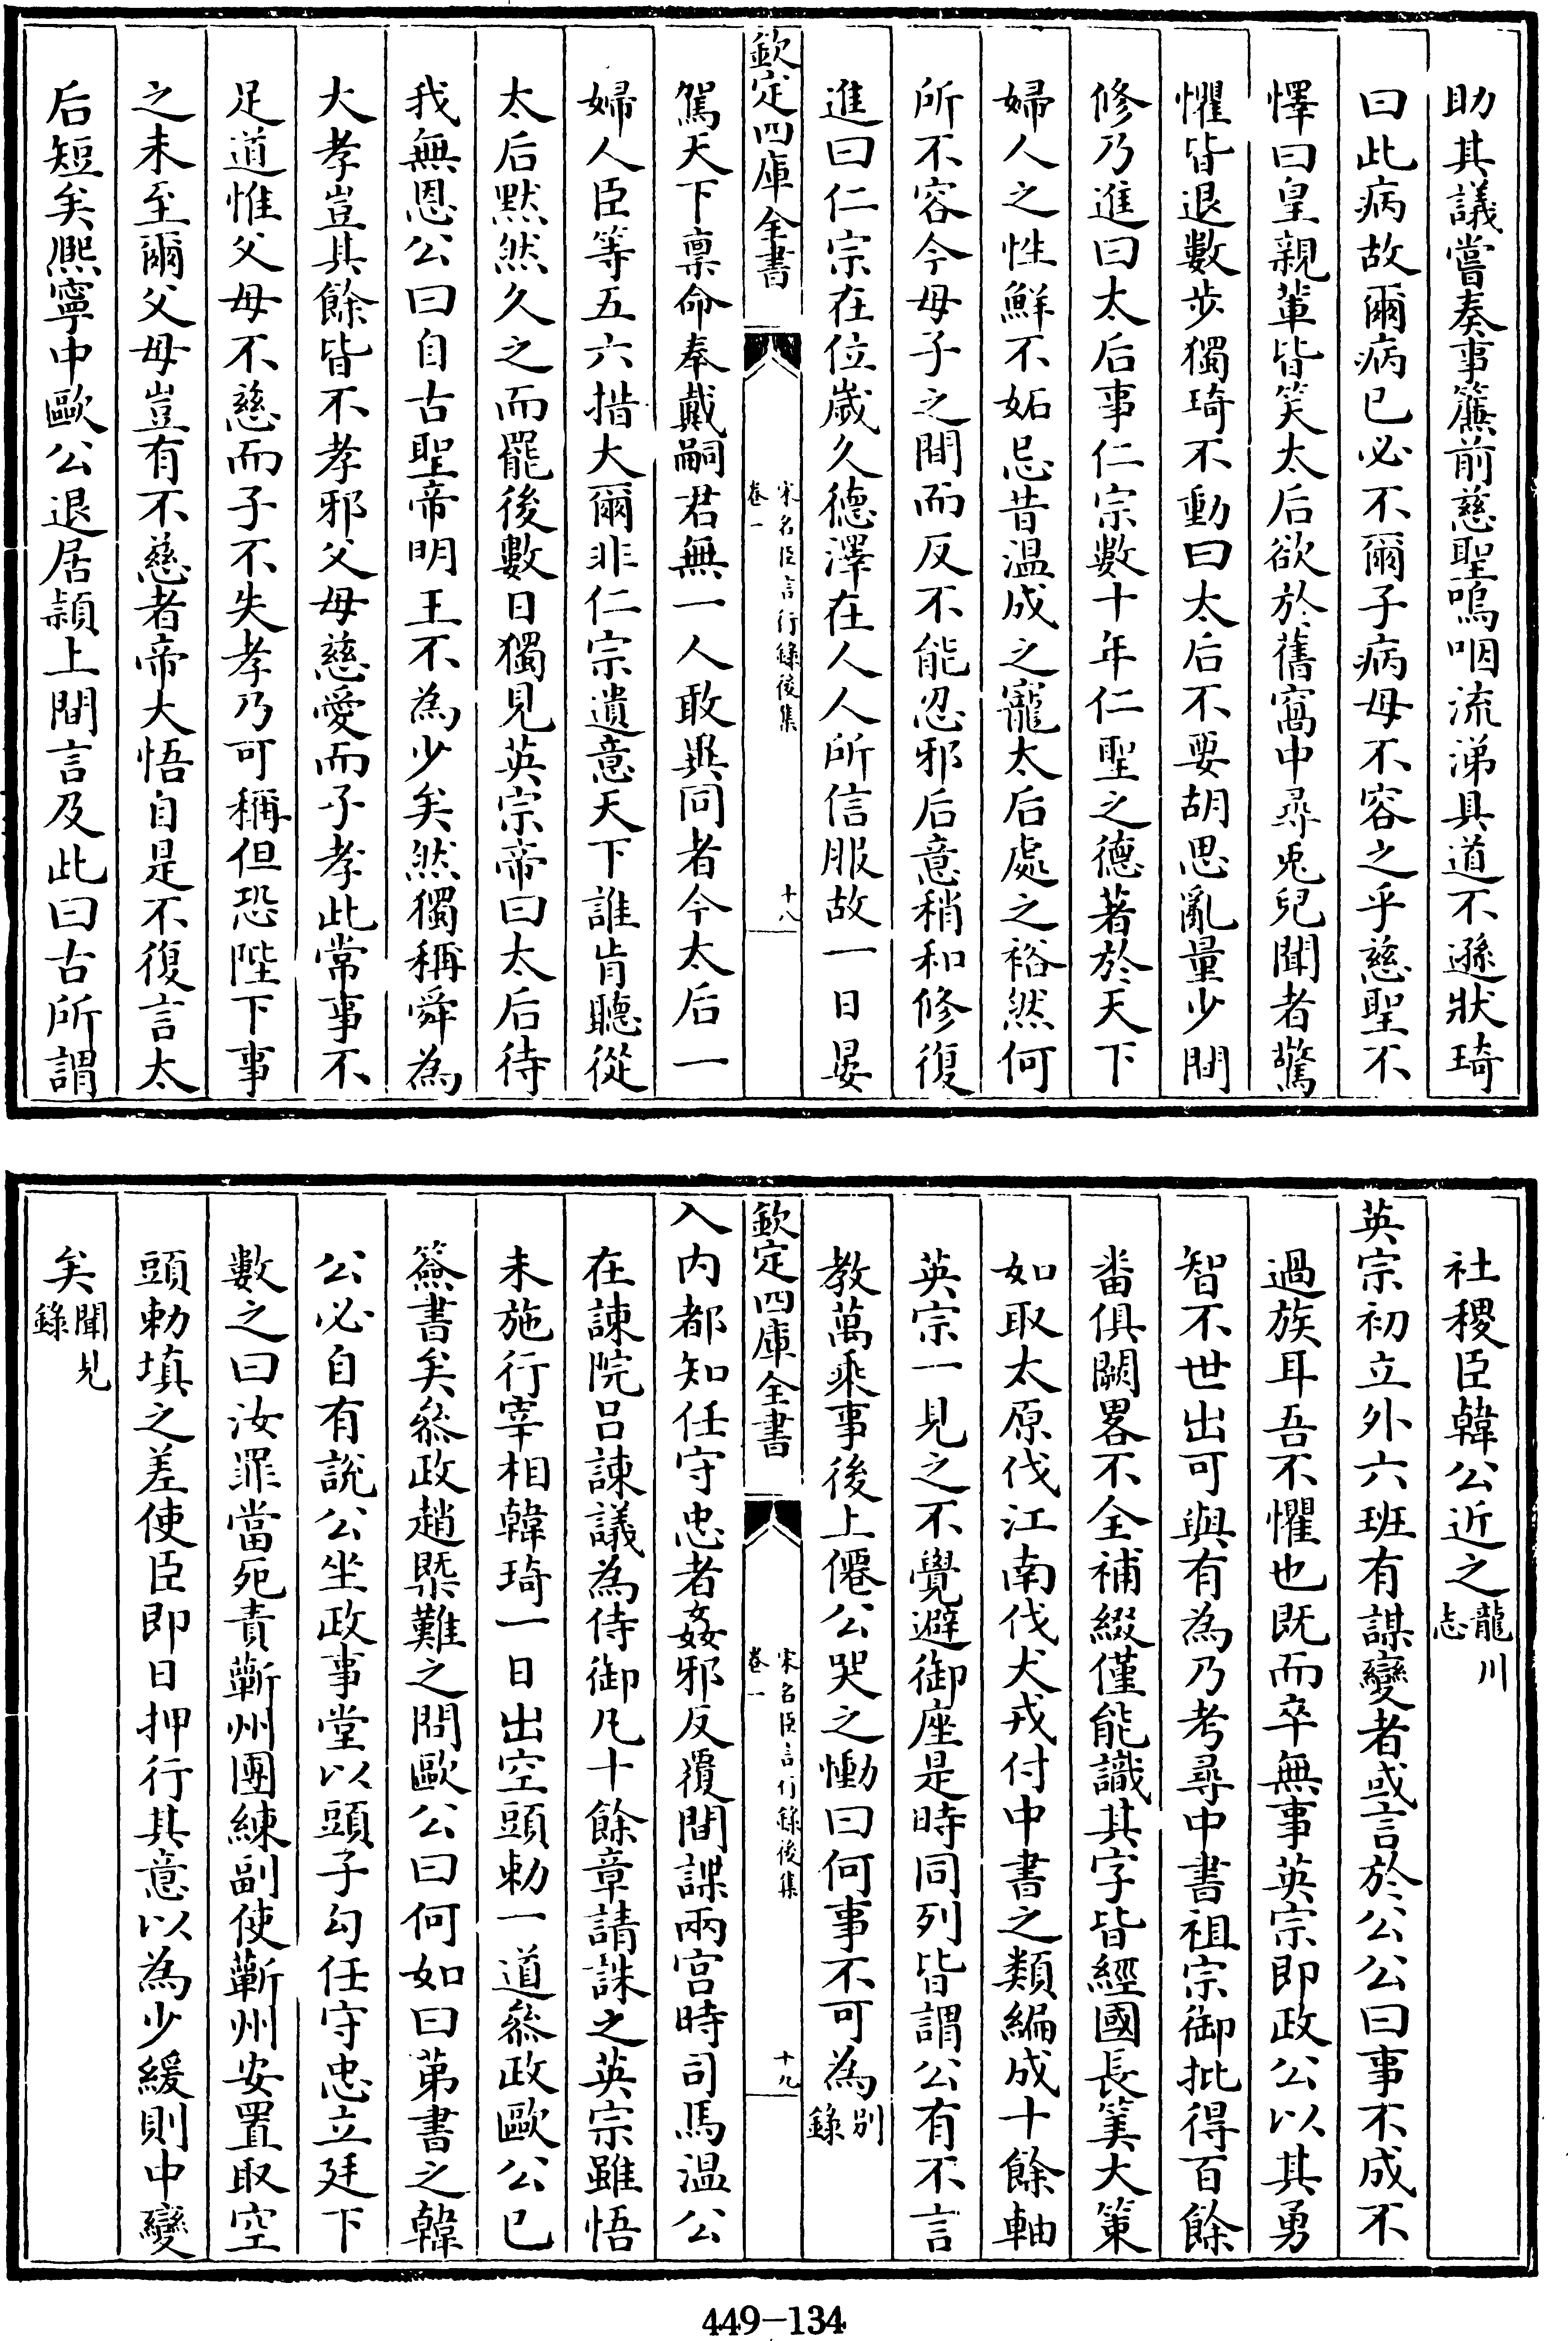 助其議嘗奏事簾前慈聖嗚咽流涕具道不遜狀琦
曰此病故爾病已必不爾子病母不容之乎慈聖不
懌曰皇親輩皆笑太后欲於舊窩中尋兎兒聞者驚
懼皆退數步獨琦不動曰太后不要胡思亂量少間
修乃進曰太后事仁宗數十年仁聖之德著於天下
婦人之性鮮不妬忌昔温成之寵太后處之裕然何
所不容今母子之間而反不能忍邪后意稍和修復
進曰仁宗在位歲久德澤在人人所信服故一日晏
欽定四庫全書
宋名臣言行録後集
卷一
十八
駕天下稟命奉戴嗣君無一人敢異同者今太后一
婦人臣等五六措大爾非仁宗遺意天下誰肯聽從
太后默然久之而罷後數日獨見英宗帝曰太后待
我無恩公曰自古聖帝明王不為少矣然獨稱舜為
大孝豈其餘皆不孝邪父母慈愛而子孝此常事不
足道惟父母不慈而子不失孝乃可稱但恐陛下事
之未至爾父母豈有不慈者帝大悟自是不復言太
后短矣熙寧中歐公退居潁上間言及此曰古所謂
社稷臣韓公近之龍川
志
英宗初立外六班有謀變者或言於公公曰事不成不
過族耳吾不懼也既而卒無事英宗即政公以其勇
智不世出可與有為乃考尋中書祖宗御批得百餘
番俱闕畧不全補綴僅能識其字皆經國長筭大策
如取太原伐江南伐犬戎付中書之類編成十餘軸
英宗一見之不覺避御座是時同列皆謂公有不言
教萬乘事後上僊公哭之慟曰何事不可為别
録
欽定四庫全書
宋名臣言行録後集
卷一
十九
入内都知任守忠者姦邪反覆間諜兩宫時司馬温公
在諫院吕諫議為侍御凡十餘章請誅之英宗雖悟
未施行宰相韓琦一日出空頭勅一道叅政歐公已
簽書矣叅政趙槩難之問歐公曰何如曰第書之韓
公必自有說公坐政事堂以頭子勾任守忠立廷下
數之曰汝罪當死責蘄州團練副使蘄州安置取空
頭勅填之差使臣即日押行其意以為少緩則中變
矣聞見
録
449-134